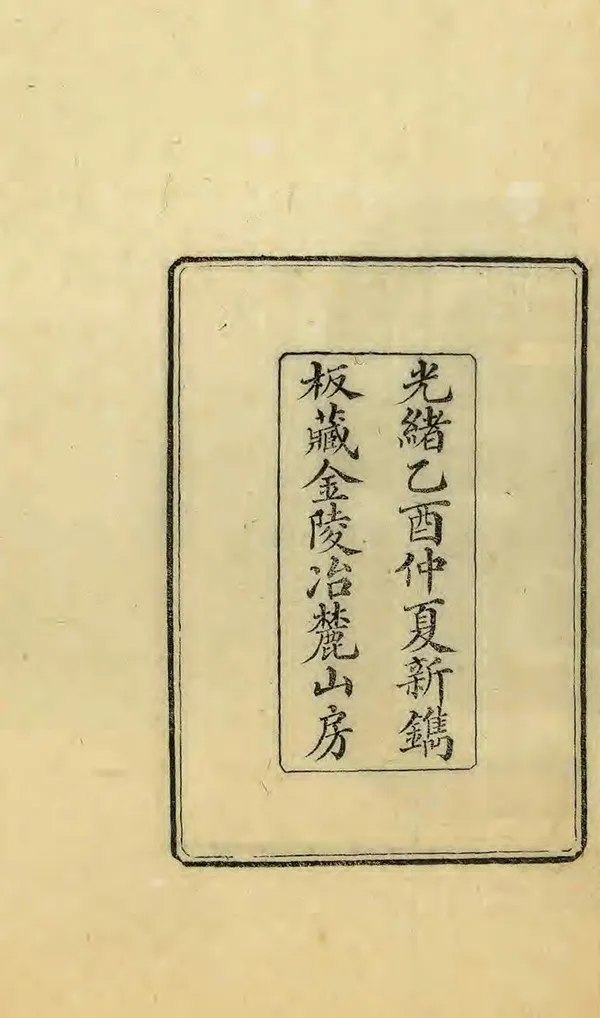 光緒乙酉仲夏新鐫
板藏金陵冶麓山房